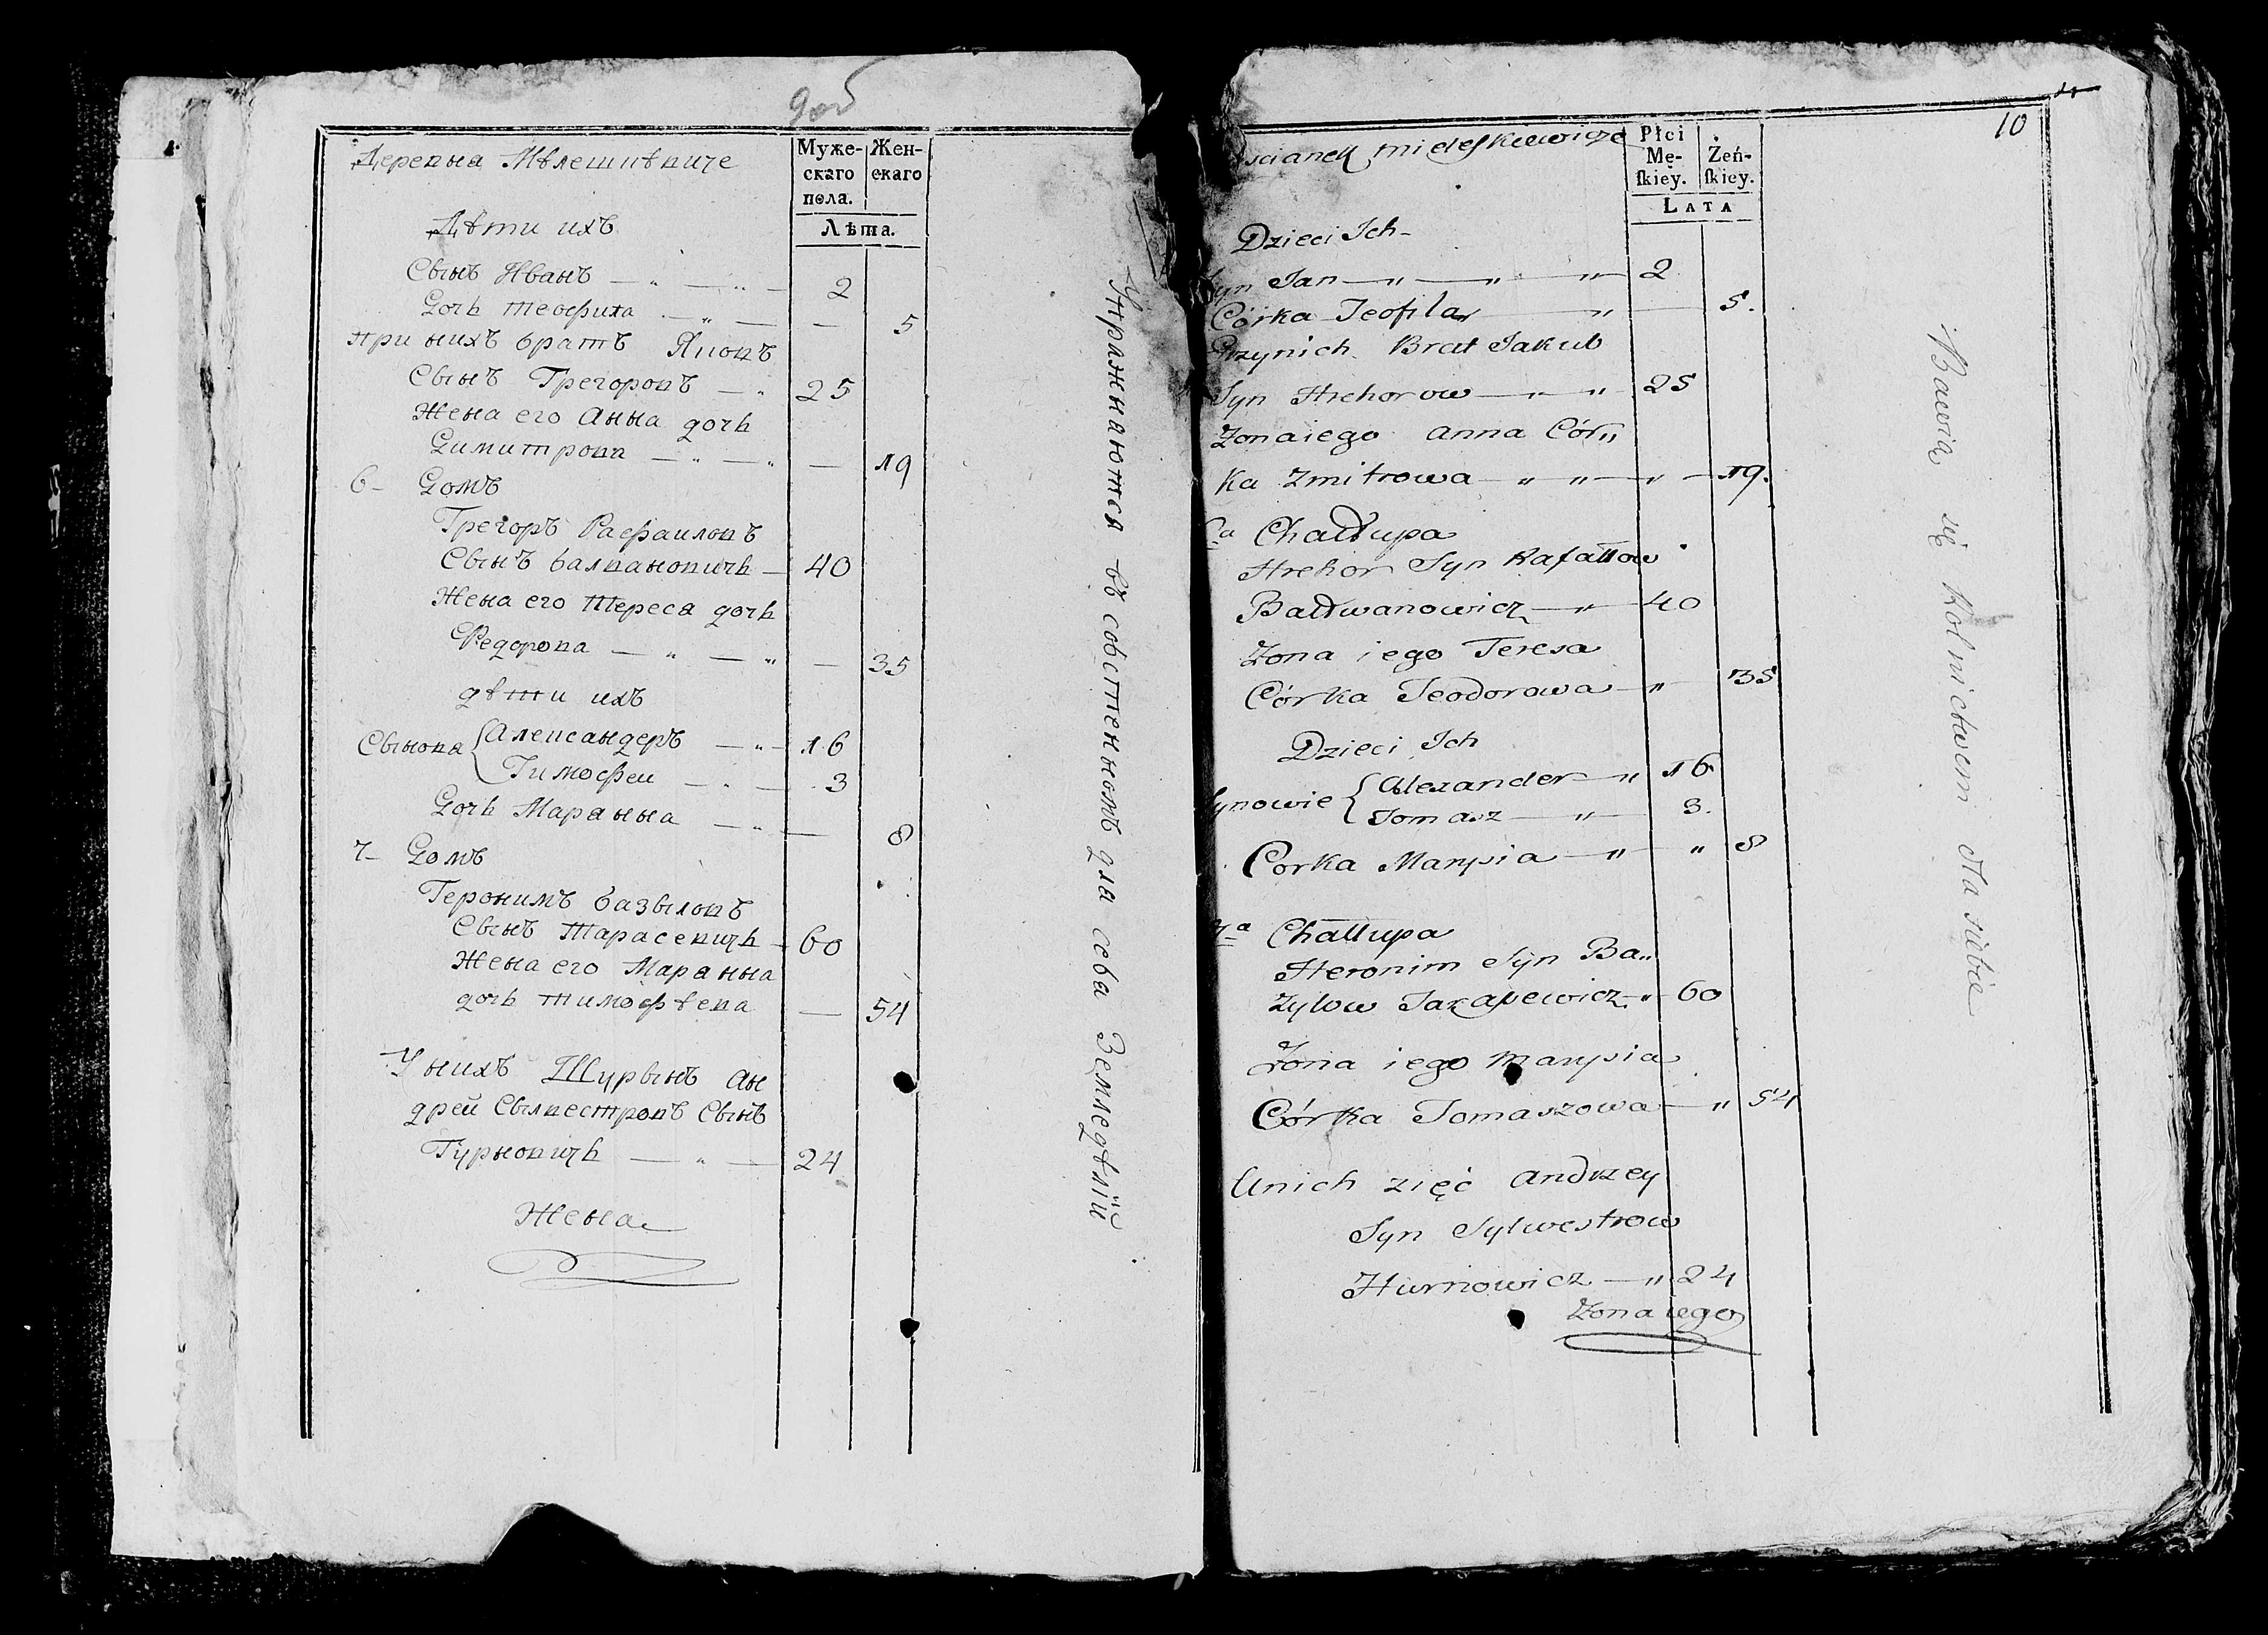 9об
Деревня Мѣлешкѣвиче
Муже-
скаго
пола.
Жен-
скаго
Лѣта.
Дѣти ихъ
Сынъ Иванъ — „ — „ — 2
Дочь теофила — „ — — 5
при нихъ братъ Яковъ
Сынъ Грегоровъ — „ 25
Жена его Анна дочь
Димитрова — „ — „ — 19
6- Домъ
Грегоръ Рафаиловъ
Сынъ балвановичь — 40
Жена его Тереса дочь
Федорова — „ — „ — 35
дѣти ихъ
Сынова { Александеръ — „ — 16
Тимофеи — „ — 3
Дочь Марянна — „ — 8
7- Домъ
Геронимъ базыловъ
Сынъ Тарасевичь — 60
Жена его Марянна
дочь тимофѣева — 54
У нихъ Шурынъ Ан
дрей Сылвестровъ Сынъ
Гурновичь — „ — 24
Жена
Упражнаются въ собстенномъ для себа Земледѣлїи
10
scianek mieleszkiewicze
Płci
Mę-
skiey.
Żeń-
skiey.
LATA
Dzieci Ich-
Syn Jan — „ — „ — „ 2
Córka Teofila — „ — 5.
Przynich Brat Jakub
Syn Hrehorow — „ — „ 25
Żona iego Anna Cór„
ka Zmitrowa — „ „ — „ — 19.
6a Chałupa
Hrehor Syn Rafałłow
Bałwanowicz — „ — 40
Żona iego Teresa
Córka Teodorowa — „ 35
Dzieci Ich
Synowie { Alexander — „ 16
Tomasz — „ — 3.
Corka Marysia — „ — „ 8
7a Chałłupa
Heronim Syn Ba„
zylow Tarasewicz — „ 60
Żona iego Marysia
Córka Tomaszowa — „ 54
Unich zięć Andrzey
Syn Sylwestrow
Hurnowicz — „ 24
Żona iego
Bawia się Rolnictwem dla siebie